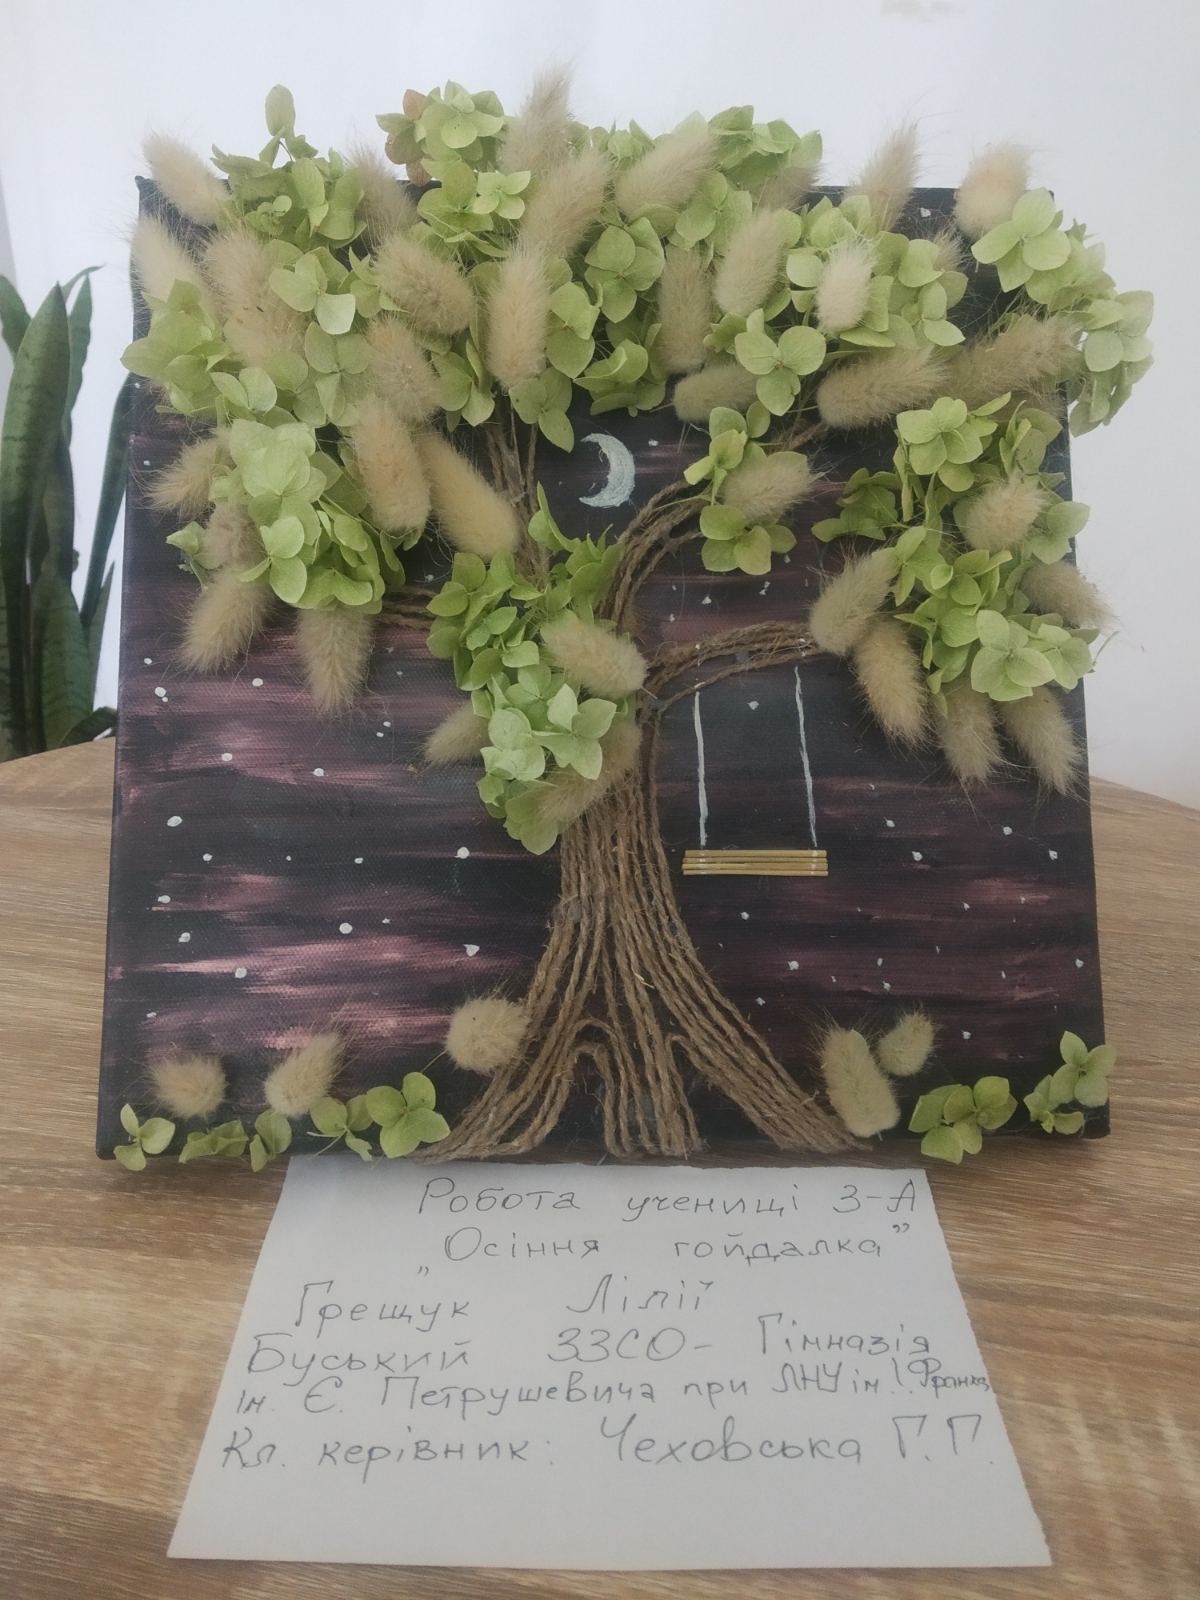 Робота учениці 3-А
„Осіння гойдалка”
Грещук Лілії
Буський ЗЗСО- Гімназія
ім. Є. Петрушевича при ЛНУ ім. І. Франка
Кл. керівник: Чеховська Г. П.